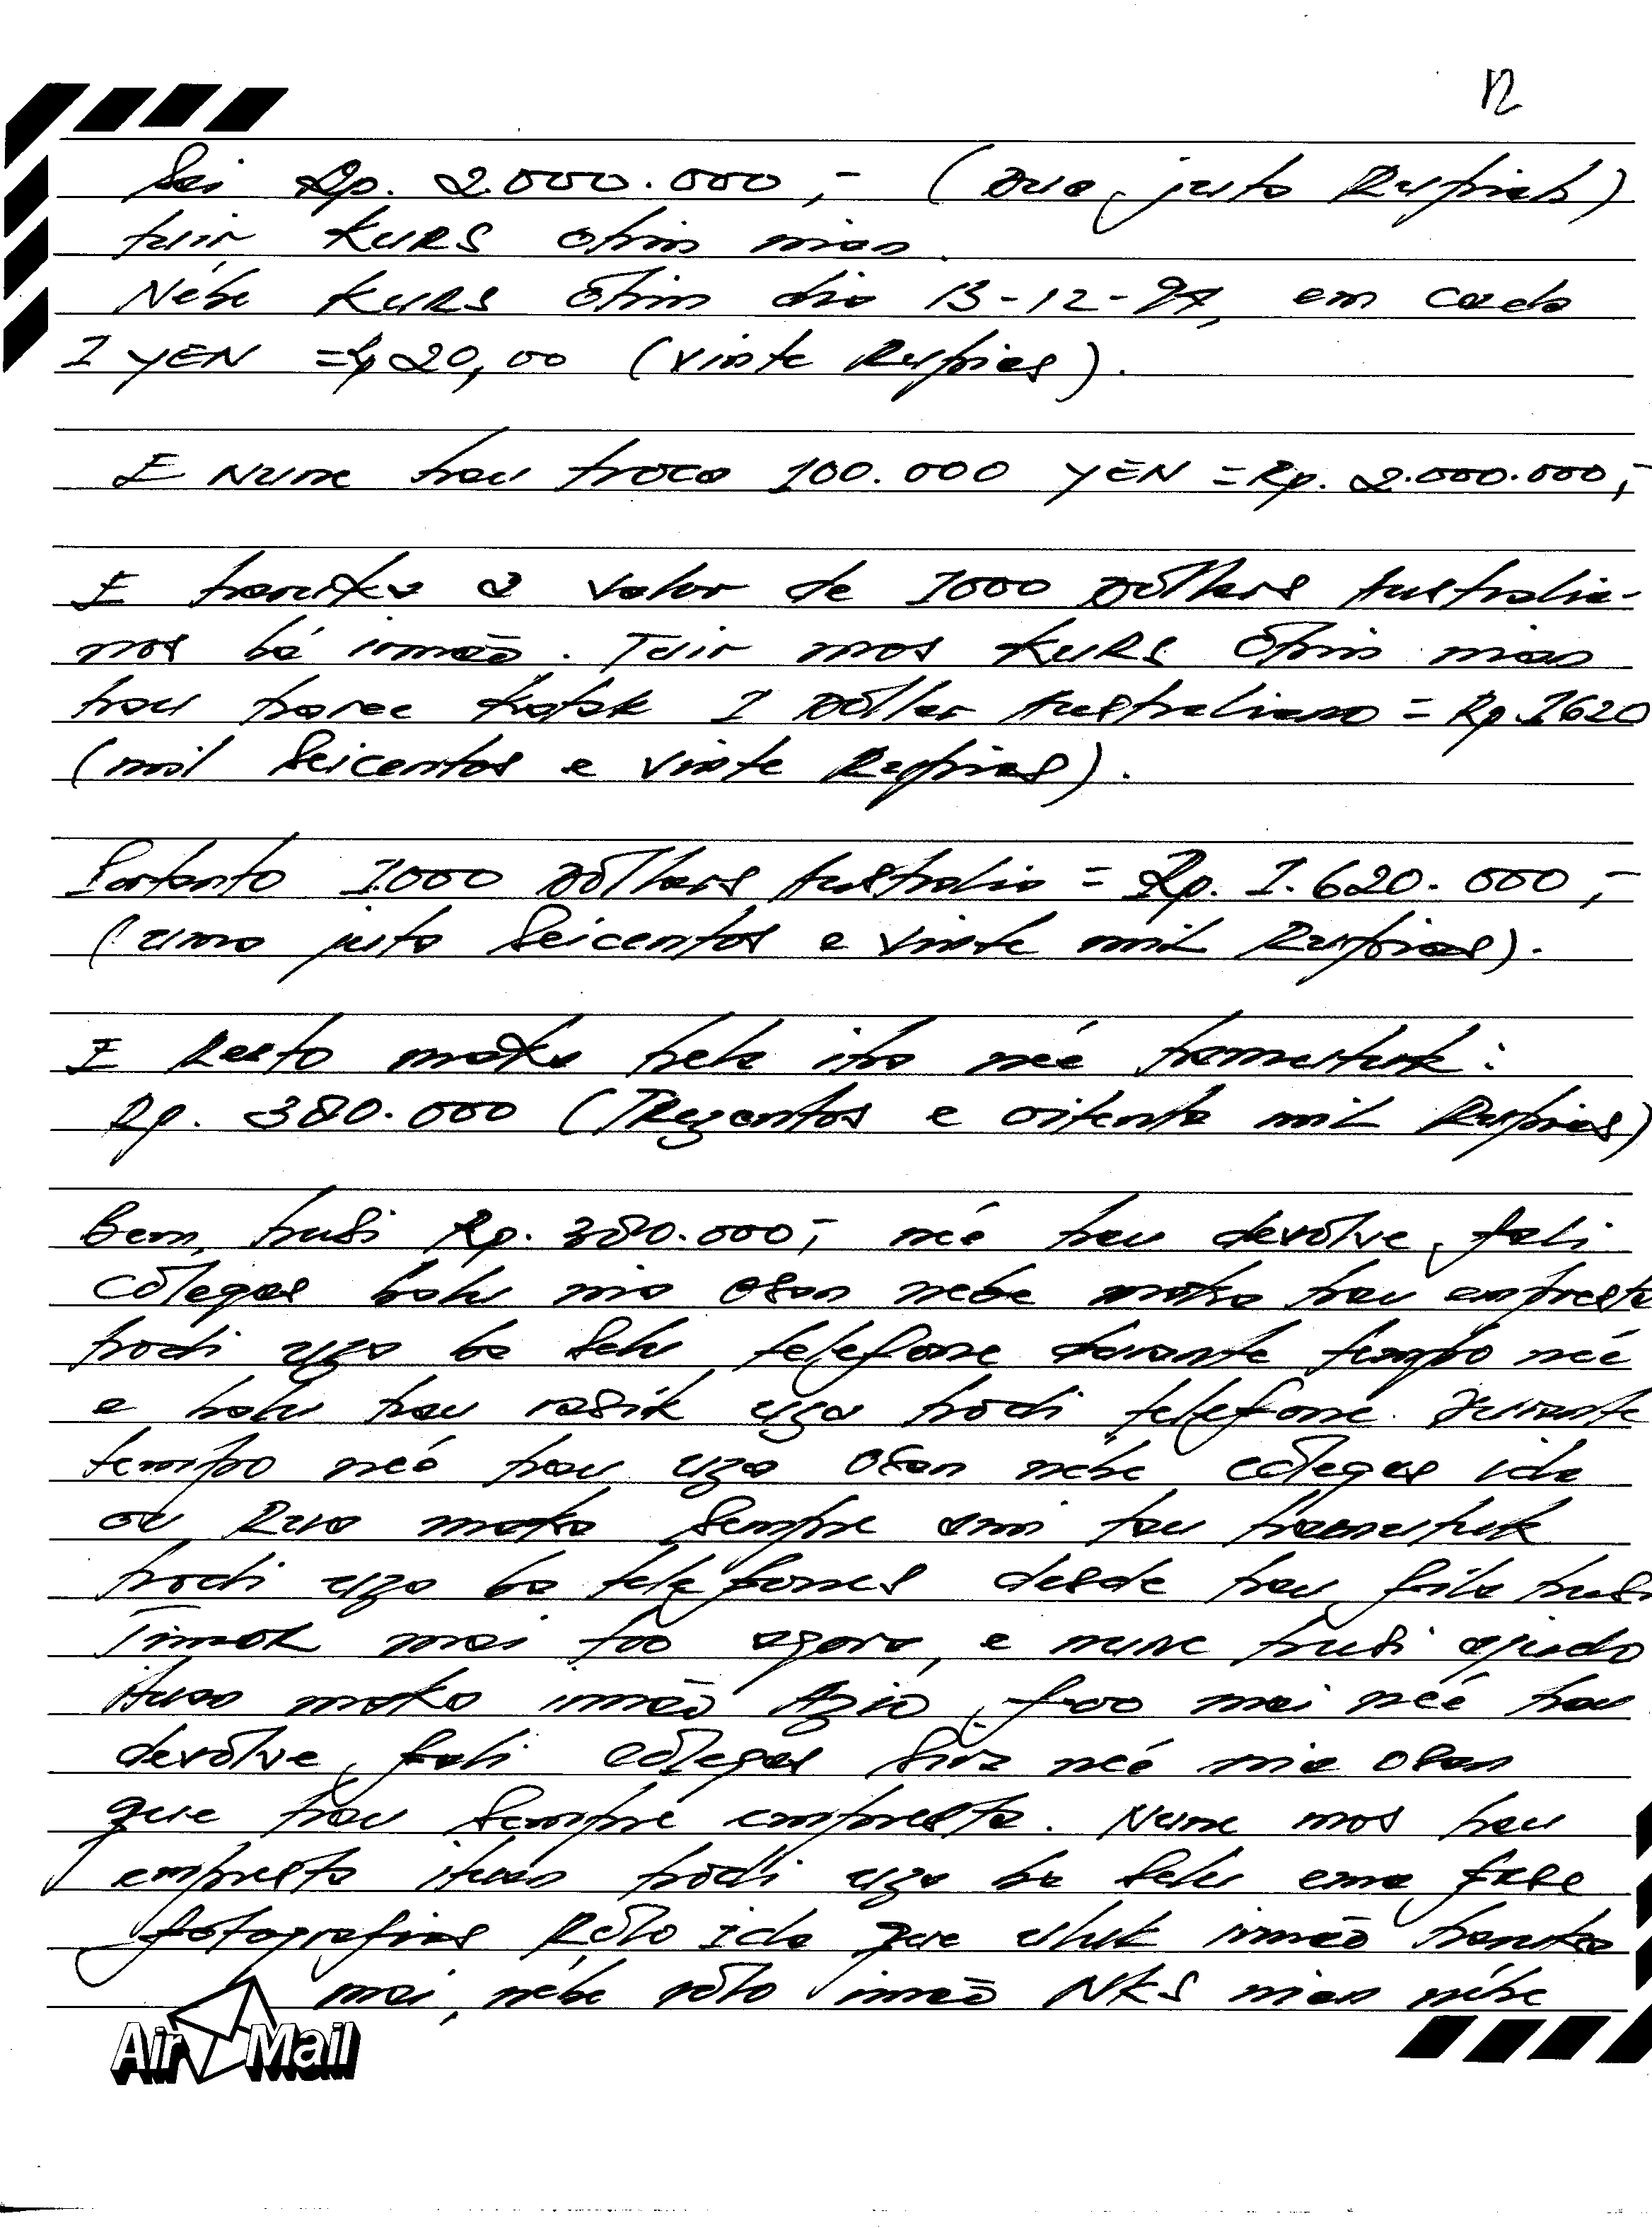 12
Sai Rp. 2.000.000,- (Dua juta Rupiah)
tuir KURS ohin nian.
Nébe KURS Ohin dia 13-12-94, em cada
1 YEN = Rp 20,00 (vinte Rupias).
E Nune hau troca 100.000 YEN = Rp. 2.000.000,-
E haruka a valor de 1000 Dóllars Australia-
nos bá irmão. Tuir mos KURS Ohin nian
hau haree katak 1 Dóllar Australiano = Rp. 1620
(mil Seicentos e vinte Rupias).
Portanto 1.000 Dóllars Australia = Rp. 1.620.000,-
(uma juta Seicentos e vinte mil Rupias).
E Resto maka hela iha neé hamutuk:
Rp. 380.000 (TRezentos e oitenta mil Rupias)
Bem, husi Rp. 380.000,- neé hau devólve fali
cólegas balu nia osan nebe maka hau empresta
hodi uza ba Selu telefone durante tempo neé
e balu hau rasik uza hodi telefone. Durante
tempo neé hau uza osan nébe cólegas ida
ou Rua maka Sempre ami tau hamutuk
hodi uza ba telefones desde hau fila husi
Timor mai too agora, e nune husi ajuda
ituan maka irmão Azio foo mai neé hau
devólve fali cólegas Sira neé nia osan
que hau Sempre empresta. Nune mos hau
empresta ituan hodi uza ba Selu ema fase
fotografias Rólo ida que uluk irmão haruka
mai, nébe rólo irmão NKS nian nébe
Air Mail